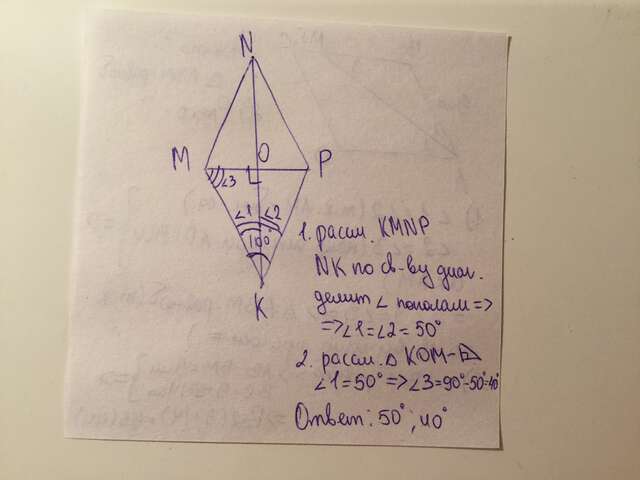 N
M
O
P
∠3
∠1
∠2
100°
K
1. рассм. KMNP
NK по св-ву диаг.
делит ∠ пополам =>
=> ∠1 = ∠2 = 50°
2. рассм. △ KOM -
∠1 = 50° => ∠3 = 90° - 50° = 40°
Ответ: 50°, 40°